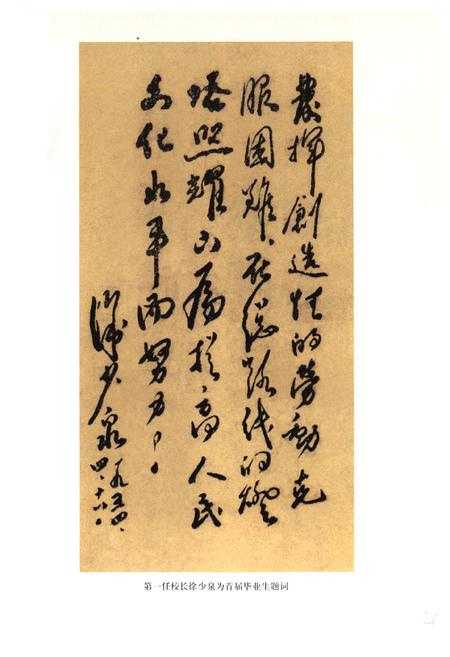 發揮創造性的勞動克
服困难、在總路线的燈
塔照耀下為提高人民
文化水平而努力！
徐少泉
一九五四、
四、十六、
第一任校长徐少泉为首届毕业生题词